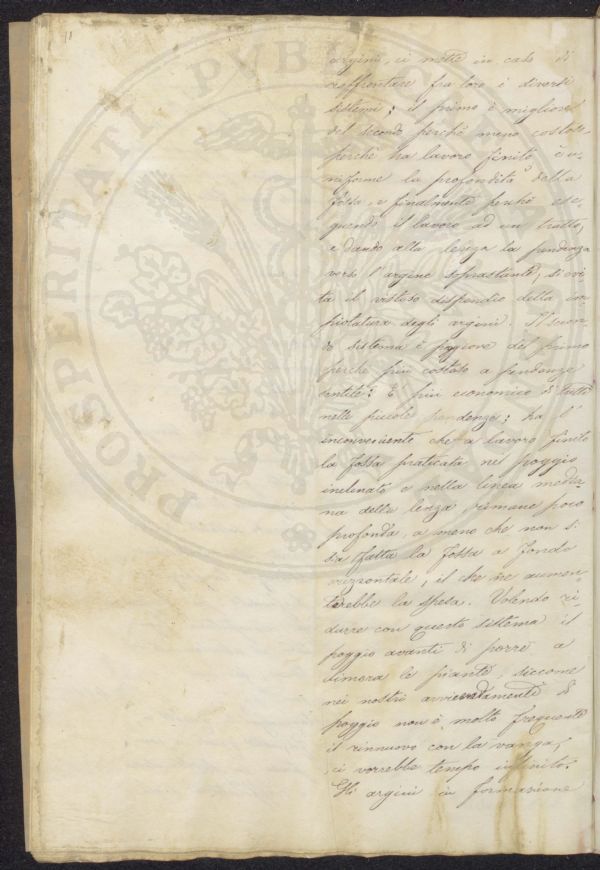 argini, ci mette in caso di
raffrontare fra loro i diversi
sistemi; il primo è migliore
del secondo perchè meno costoso,
perchè ha lavoro finito è u-
niforme la profondità della
fossa, e finalmente perchè ese-
guendo il lavoro ad un tratto,
e dando alla lenza la pendenza
verso l'argine soprastante, si evi
ta il vistoso dispendio della im
piotatura degli argini. Il secon-
do sistema è peggiore del primo
perchè più costoso a pendenze
sentite: È più economico di tutti
nelle piccole pendenze; ha l'
inconveniente che a lavoro finito
la fossa praticata nel poggio
inclinato e nella linea media
na della lenza rimane poco
profonda, a meno che non si
sia fatta la fossa a fondo
orizzontale, il che ne aumen-
terebbe la spesa. Volendo ri-
durre con questo sistema il
poggio avanti di porre a
dimora le piante, siccome
nei nostri avvicendamenti di
poggio non è molto frequente
il rinnuovo con la vanga,
ci vorrebbe tempo infinito.
Gli argini in formazione
PROSPERITATI PVBLICAE